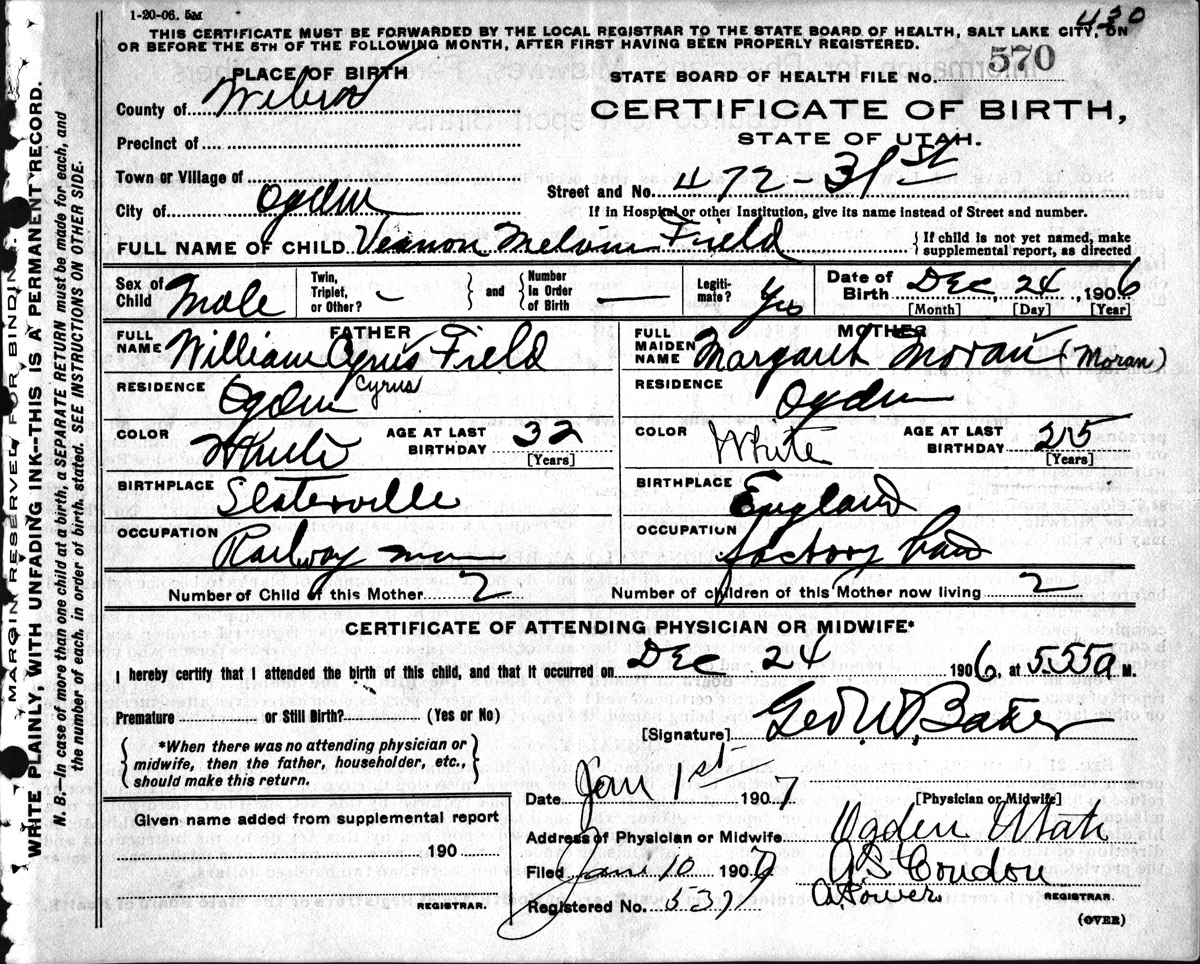 1-20-06. 5M
430
THIS CERTIFICATE MUST BE FORWARDED BY THE LOCAL REGISTRAR TO THE STATE BOARD OF HEALTH, SALT LAKE CITY, ON
OR BEFORE THE 5TH OF THE FOLLOWING MONTH, AFTER FIRST HAVING BEEN PROPERLY REGISTERED.
PLACE OF BIRTH
STATE BOARD OF HEALTH FILE NO. 570
County of
CERTIFICATE OF BIRTH,
Precinct of
STATE OF UTAH.
Town or Village of
Street and No. 472-31st
City of Ogden
If in Hospital or other Institution, give its name instead of Street and number.
FULL NAME OF CHILD Vernon Melvin Field {If child is not yet named, make supplemental report, as directed
Sex of Child Male
Twin, Triplet, or Other? – } and { Number in Order of Birth —
Legiti-mate? Yes
Date of Birth Dec 24, 1906
[Month] [Day] [Year]
FATHER
FULL NAME William Cyrus Field
Cyrus
RESIDENCE Ogden
COLOR White AGE AT LAST BIRTHDAY 32
[Years]
BIRTHPLACE Slaterville
OCCUPATION Railway man
MOTHER
FULL MAIDEN NAME Margaret Moran (Moran)
RESIDENCE Ogden
COLOR White AGE AT LAST BIRTHDAY
[Years]
BIRTHPLACE England
OCCUPATION factory
Number of Child of this Mother 2 Number of children of this Mother now living 2
CERTIFICATE OF ATTENDING PHYSICIAN OR MIDWIFE*
I hereby certify that I attended the birth of this child, and that it occurred on Dec 24 1906, at 555a M.
Premature or Still Birth? (Yes or No)
[Signature] Geo. W. Baker
{*When there was no attending physician or
midwife, then the father, householder, etc.,
should make this return.}
Date Jan 1st 1907
[Physician or Midwife]
Given name added from supplemental report
190
REGISTRAR.
Address of Physician or Midwife Ogden Utah
Filed Jan 10 1907 Condon
Registered No. 537
REGISTRAR.
(OVER)
MARGIN RESERVED FOR BINDIN
WRITE PLAINLY, WITH UNFADING INK--THIS IS A PERMANENT RECORD.
N. B.—In case of more than one child at a birth, a SEPARATE RETURN must be made for each, and
the number of each, in order of birth, stated. SEE INSTRUCTIONS ON OTHER SIDE.